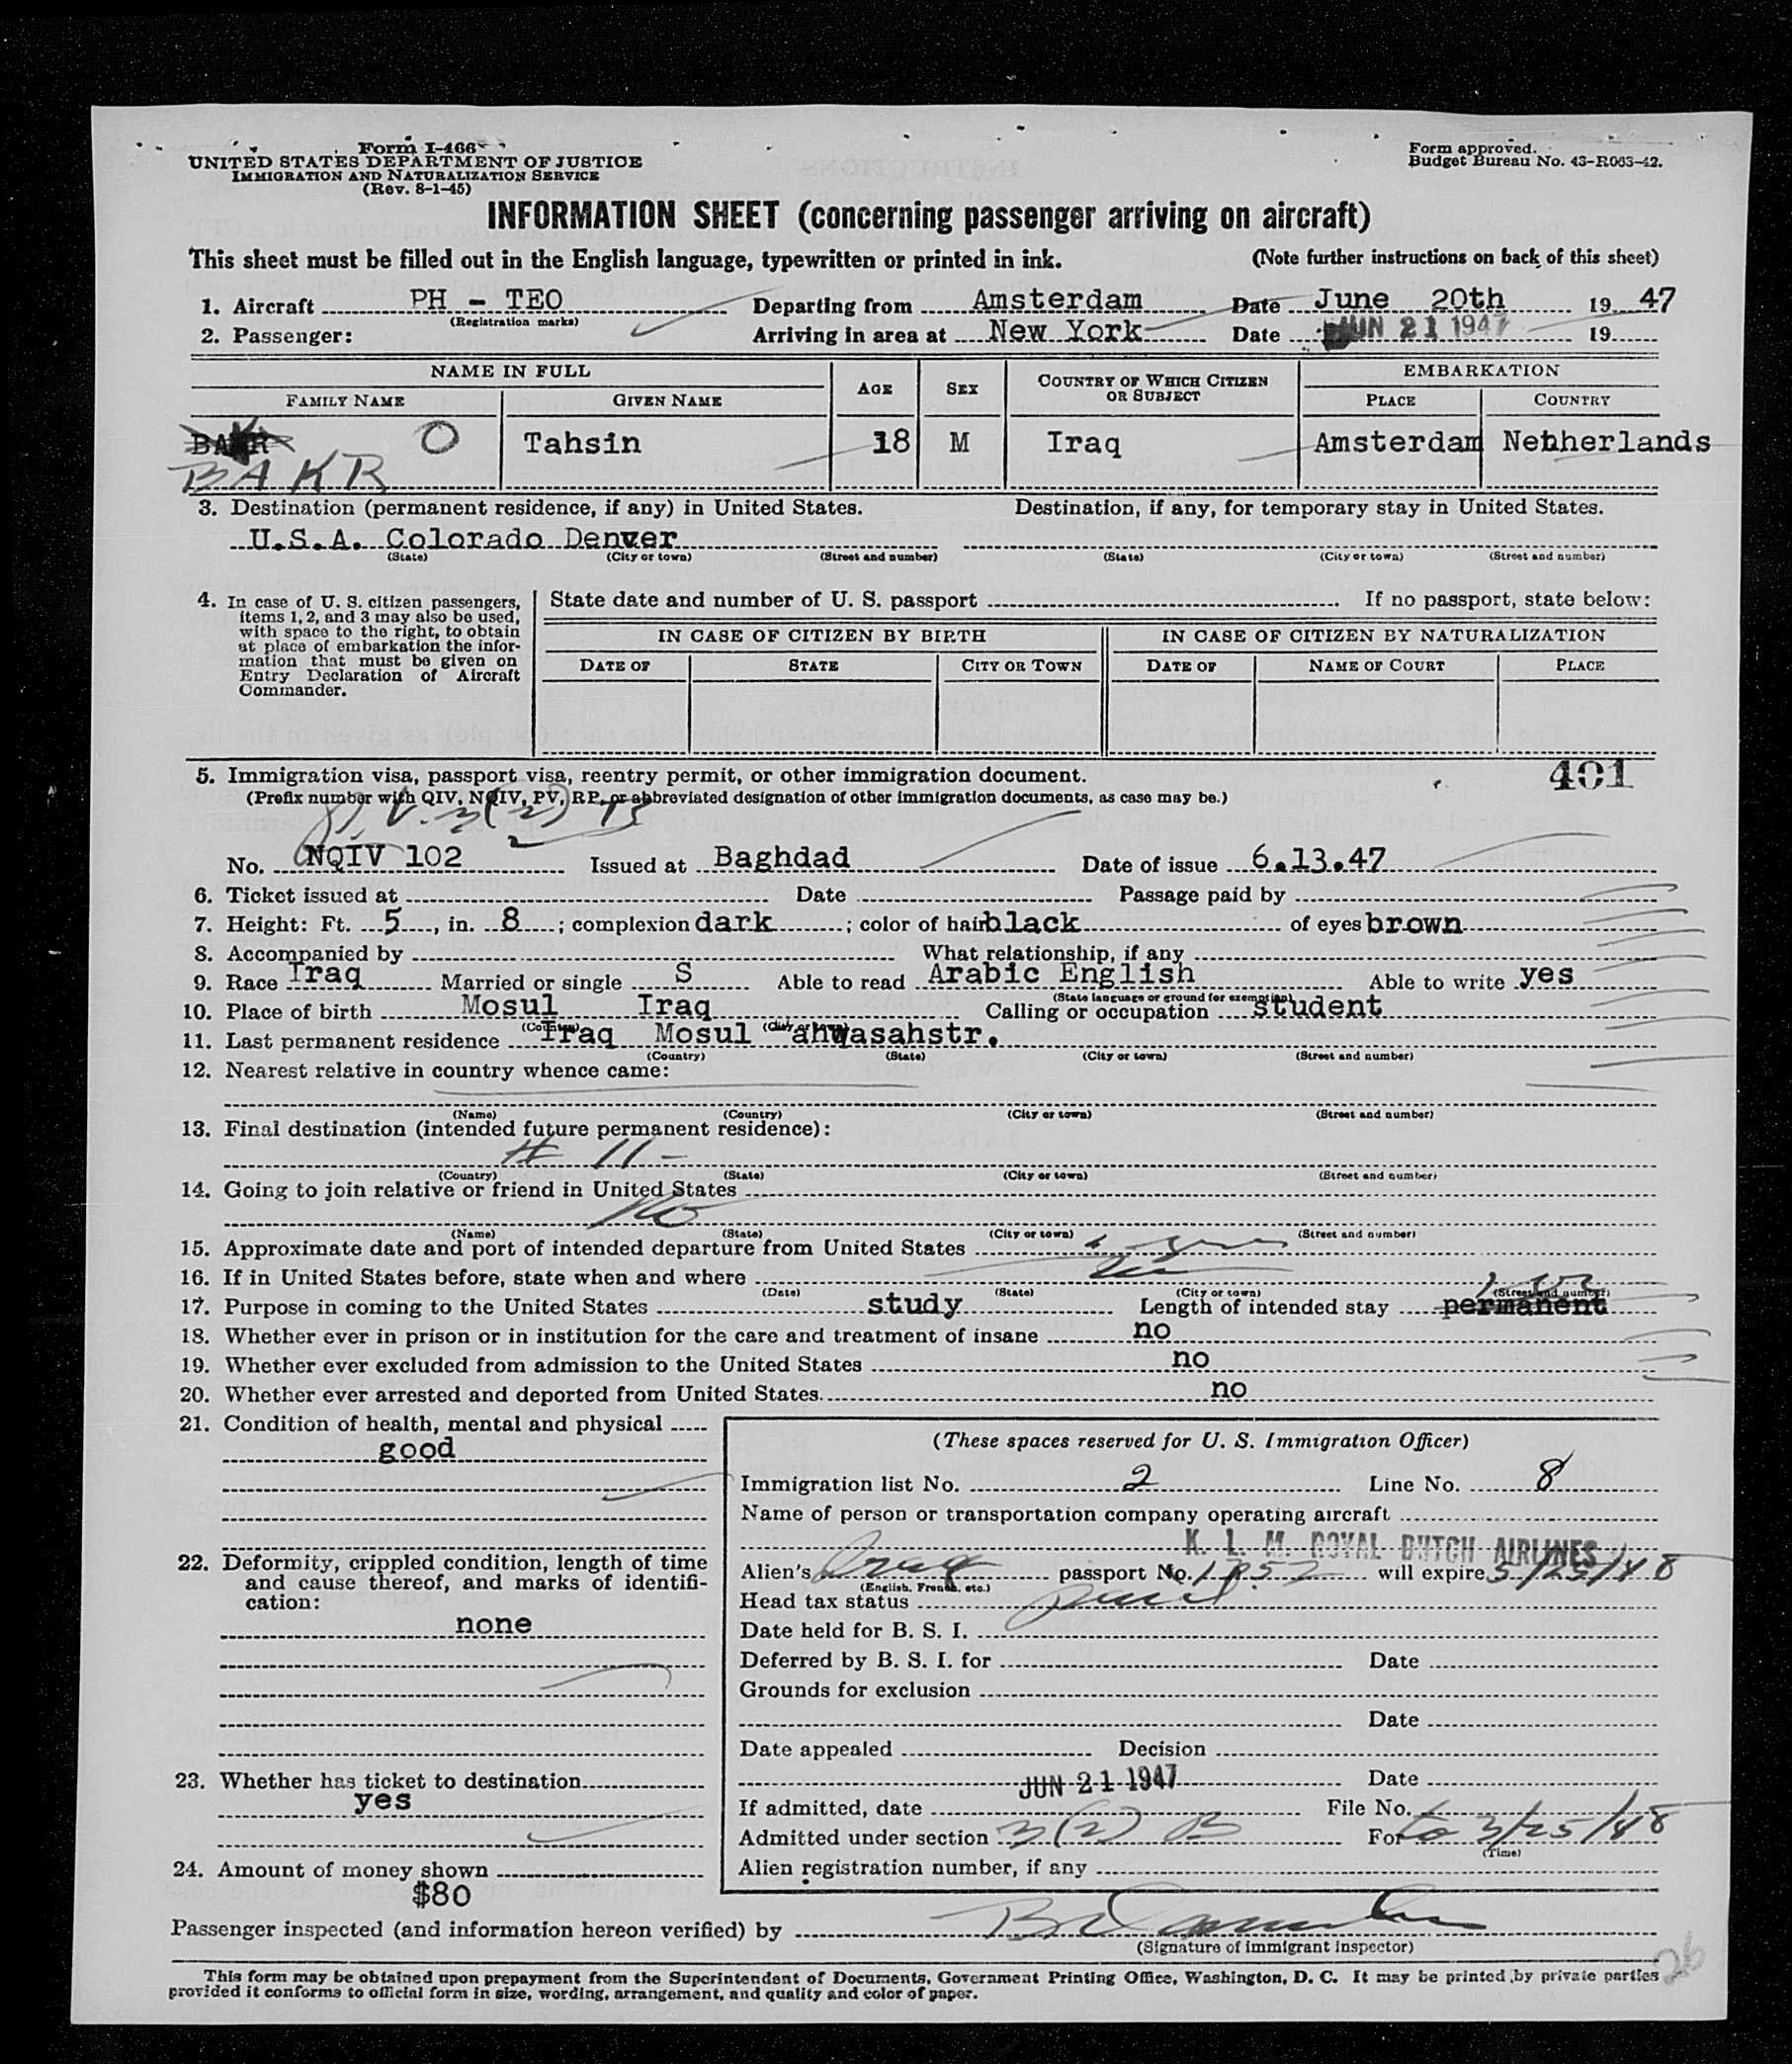 Form I-466
UNITED STATES DEPARTMENT OF JUSTICE
IMMIGRATION AND NATURALIZATION SERVICE
(Rev. 8-1-45)
Form approved.
Budget Bureau No. 43-R063-42.
INFORMATION SHEET (concerning passenger arriving on aircraft)
This sheet must be filled out in the English language, typewritten or printed in ink. (Note further instructions on back of this sheet)
1. Aircraft PH - TEO Departing from Amsterdam Date June 20th 19 47
(Registration marks)
2. Passenger: Arriving in area at New York Date JUN 21 1947 19
NAME IN FULL AGE SEX COUNTRY OF WHICH CITIZEN OR SUBJECT EMBARKATION
FAMILY NAME GIVEN NAME PLACE COUNTRY
O Tahsin 18 M Iraq Amsterdam Netherlands
BAKR
3. Destination (permanent residence, if any) in United States. Destination, if any, for temporary stay in United States.
U.S.A. Colorado Denver
(State) (City or town) (Street and number) (State) (City or town) (Street and number)
4. In case of U. S. citizen passengers, items 1, 2, and 3 may also be used, with space to the right, to obtain at place of embarkation the information that must be given on Entry Declaration of Aircraft Commander.
State date and number of U. S. passport If no passport, state below:
IN CASE OF CITIZEN BY BIRTH IN CASE OF CITIZEN BY NATURALIZATION
DATE OF STATE CITY OR TOWN DATE OF NAME OF COURT PLACE
5. Immigration visa, passport visa, reentry permit, or other immigration document. 401
(Prefix number with QIV, NQIV, PV, RP, or abbreviated designation of other immigration documents, as case may be.)
P.V. 3(2) B
No. NQIV 102 Issued at Baghdad Date of issue 6.13.47
6. Ticket issued at Date Passage paid by
7. Height: Ft. 5, in. 8; complexion dark; color of hair black of eyes brown
8. Accompanied by What relationship, if any
9. Race Iraq Married or single S Able to read Arabic English Able to write yes
(State language or ground for exemption)
10. Place of birth Mosul Iraq Calling or occupation student
(Country) (City or town)
11. Last permanent residence Iraq Mosul ahwasahstr.
(Country) (State) (City or town) (Street and number)
12. Nearest relative in country whence came:
(Name) (Country) (City or town) (Street and number)
13. Final destination (intended future permanent residence):
# 11 -
(Country) (State) (City or town) (Street and number)
14. Going to join relative or friend in United States
No
(Name) (State) (City or town) (Street and number)
15. Approximate date and port of intended departure from United States
16. If in United States before, state when and where
(Date) (State) (City or town) (Street and number)
17. Purpose in coming to the United States study Length of intended stay permanent
18. Whether ever in prison or in institution for the care and treatment of insane no
19. Whether ever excluded from admission to the United States no
20. Whether ever arrested and deported from United States no
21. Condition of health, mental and physical
good
22. Deformity, crippled condition, length of time
and cause thereof, and marks of identifi-
cation:
none
23. Whether has ticket to destination
yes
24. Amount of money shown
$80
(These spaces reserved for U. S. Immigration Officer)
Immigration list No. 2 Line No. 8
Name of person or transportation company operating aircraft
K. L. M. ROYAL DUTCH AIRLINES
Alien's Iraq passport No. will expire 5/25/48
(English, French, etc.)
Head tax status
Date held for B. S. I.
Deferred by B. S. I. for Date
Grounds for exclusion
Date
Date appealed Decision
Date
JUN 21 1947
If admitted, date File No.
Admitted under section 3(2) B For to 3/25/48
(Time)
Alien registration number, if any
Passenger inspected (and information hereon verified) by
(Signature of immigrant inspector)
26
This form may be obtained upon prepayment from the Superintendent of Documents, Government Printing Office, Washington, D. C. It may be printed by private parties
provided it conforms to official form in size, wording, arrangement, and quality and color of paper.